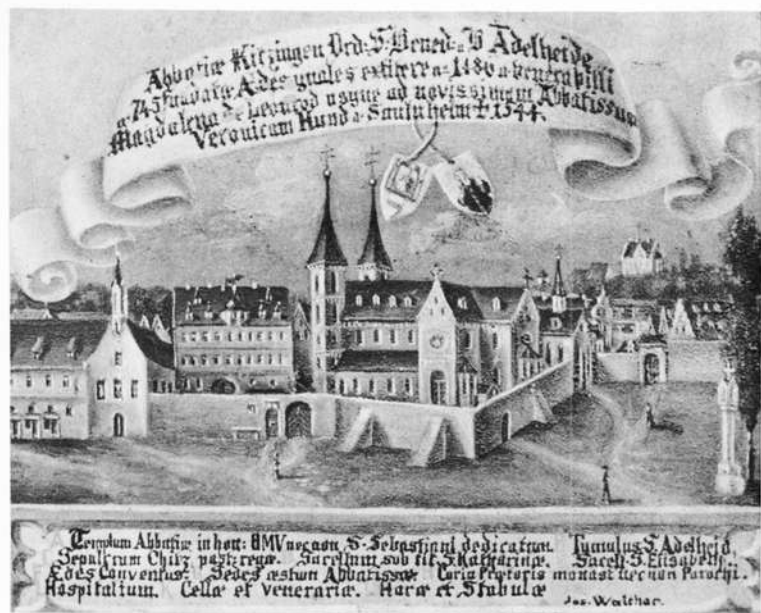 Abbatiæ Kitzingen Ord: S: Bened: a B Adelheide
a: 745 fundatæ Ædes quales extitere a: 1480 a venerabili
Magdalena de Leonrod usque ad novissimam Abbatissam
Veronicam Hund a Saulnheim † 1544.
Templum Abbatiæ in hon: BMV necnon S: Sebastiani dedicatum Tumulus S. Adelheid.
Sepulcrum Chitz past: regæ Sacellum sub tit. S. Katharinæ. Sacell: S. Elisabeth:
Ædes Conventus: Sedes æstum Abbatissæ Curia Prætoris monast: necnon Parochi.
Hospitalium. Cellæ et veneraria. Haræ et Stabulæ
Jos. Walthar.